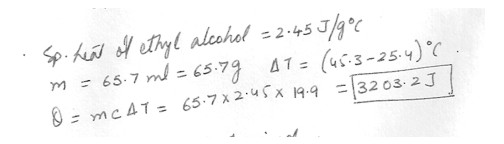 Sp. heat of ethyl alcohol = 2.45 J/g°C
m = 65.7 ml = 65.7g ΔT = (45.3-25.4)°C.
Q = mcΔT = 65.7 x 2.45 x 19.9 = 3203.2 J